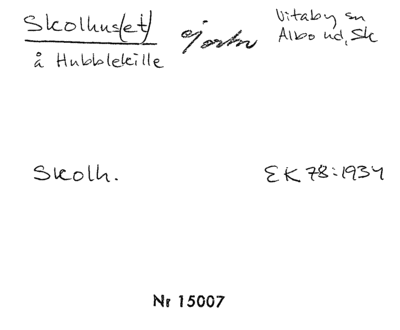 Skolhus(et) ej ortn Vitaby sn
Albo hd, Sk
å Hubblekille
Skolh. EK 78:1934
Nr 15007